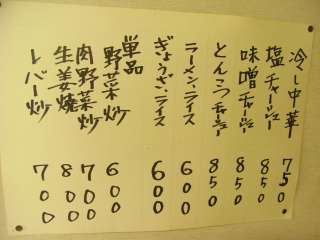 冷し中華 750
塩チャーシュー 850
味噌チャーシュー 850
とんこつチャーシュー 850
ラーメン、ライス 600
ぎょうざ、ライス 600
単品
野菜炒 600
肉野菜炒 700
生姜焼 800
レバー炒 700